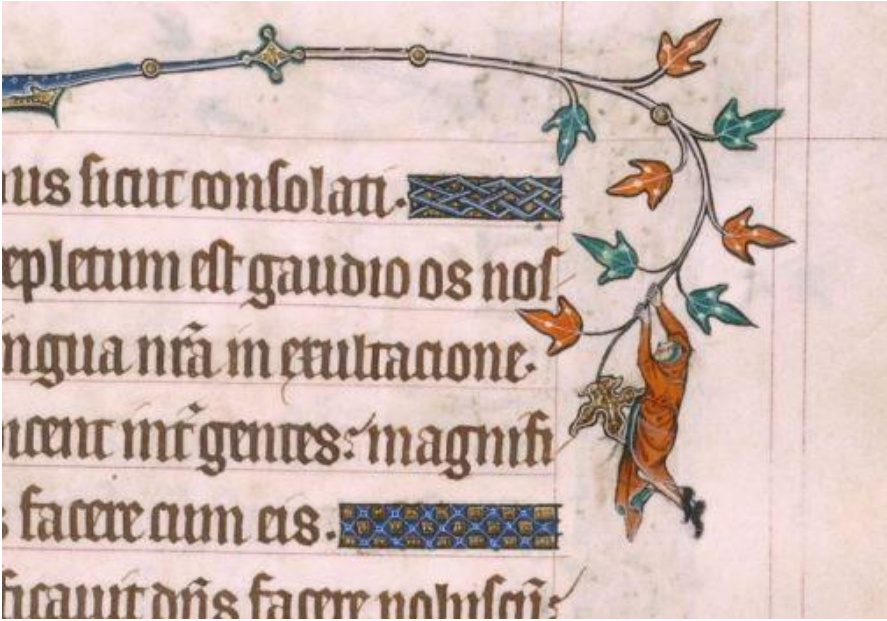 us sicut consolati.
epletum est gaudio os nos
ngua nr̃a in exultacione.
icent int̃ gentes: magnifi
s facere cum eis.
ficauit dñs facere nobiscũ: